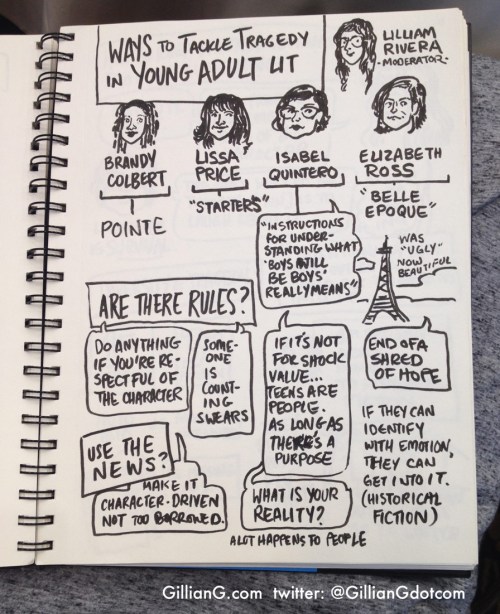 WAYS TO TACKLE TRAGEDY
IN YOUNG ADULT LIT
LILLIAM
RIVERA
-MODERATOR-
BRANDY
COLBERT
POINTE
LISSA
PRICE
"STARTERS"
ISABEL
QUINTERO
"INSTRUCTIONS
FOR UNDER-
STANDING WHAT
'BOYS WILL
BE BOYS'
REALLY MEANS"
ELIZABETH
ROSS
"BELLE
EPOQUE"
WAS
"UGLY"
NOW
BEAUTIFUL
ARE THERE RULES?
DO ANYTHING
IF YOU'RE RE-
SPECTFUL OF
THE CHARACTER
SOME-
ONE
IS
COUNT-
ING
SWEARS
IF IT'S NOT
FOR SHOCK
VALUE...
TEENS ARE
PEOPLE.
AS LONG AS
THERE'S A
PURPOSE
END OF A
SHRED
OF HOPE
IF THEY CAN
IDENTIFY
WITH EMOTION,
THEY CAN
GET INTO IT.
(HISTORICAL
FICTION)
USE THE
NEWS?
MAKE IT
CHARACTER-DRIVEN
NOT TOO BORROWED.
WHAT IS YOUR
REALITY?
A LOT HAPPENS TO PEOPLE
GillianG.com twitter: @GillianGdotcom